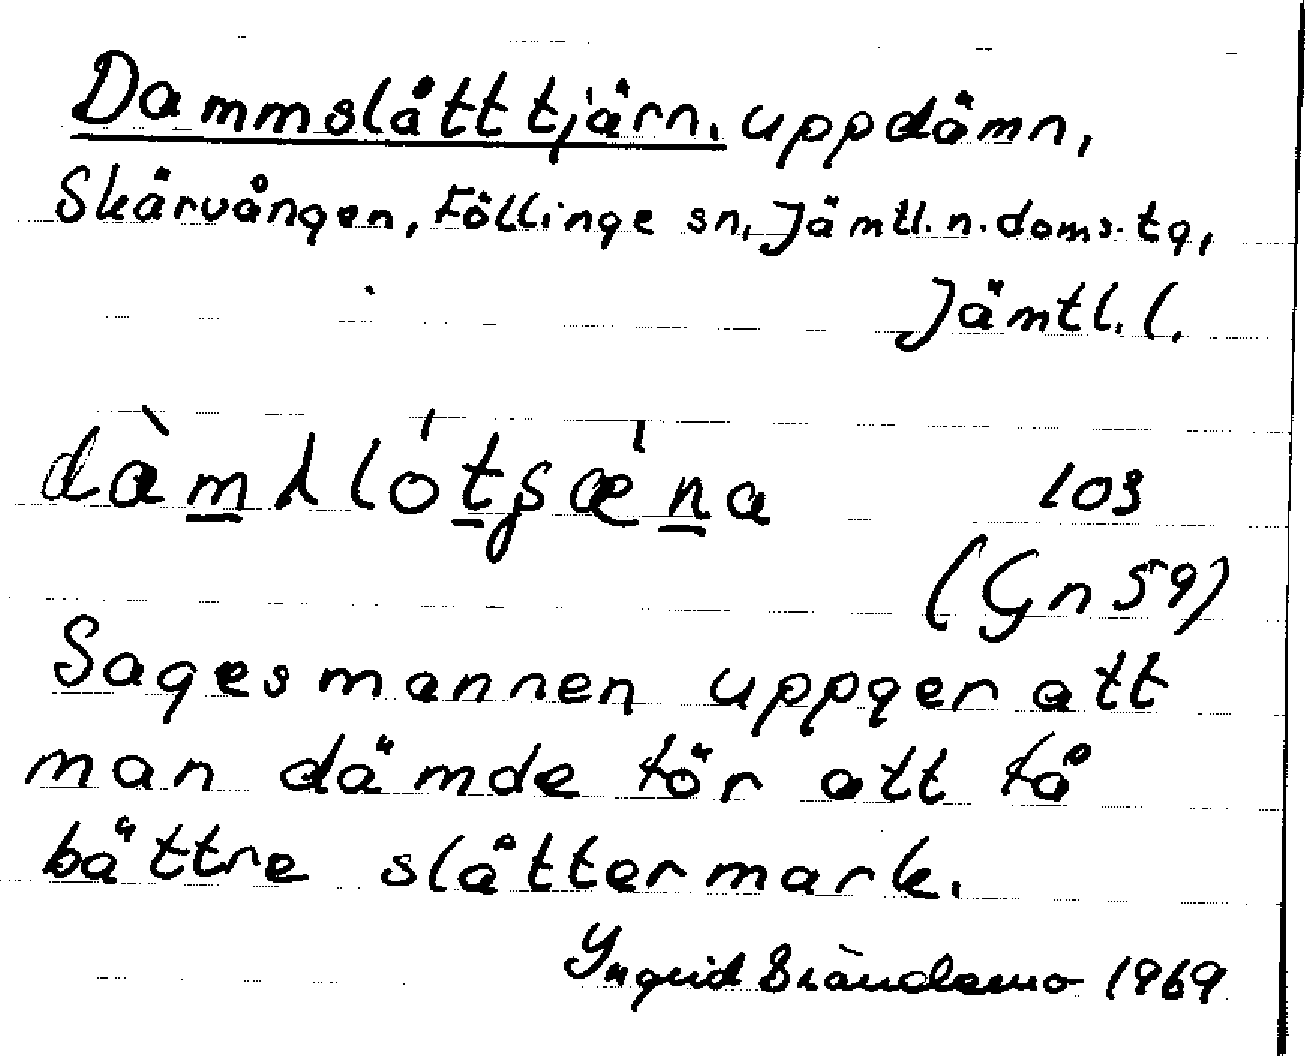 Dammslåttjärn, uppdämn,
Skärvången, Föllinge sn, Jämtl. n. doms. tg,
Jämtl. l.
103
(Gn 59)
Sagesmannen uppger att
man dämde för att få
bättre slåttermark.
Ingrid 1969